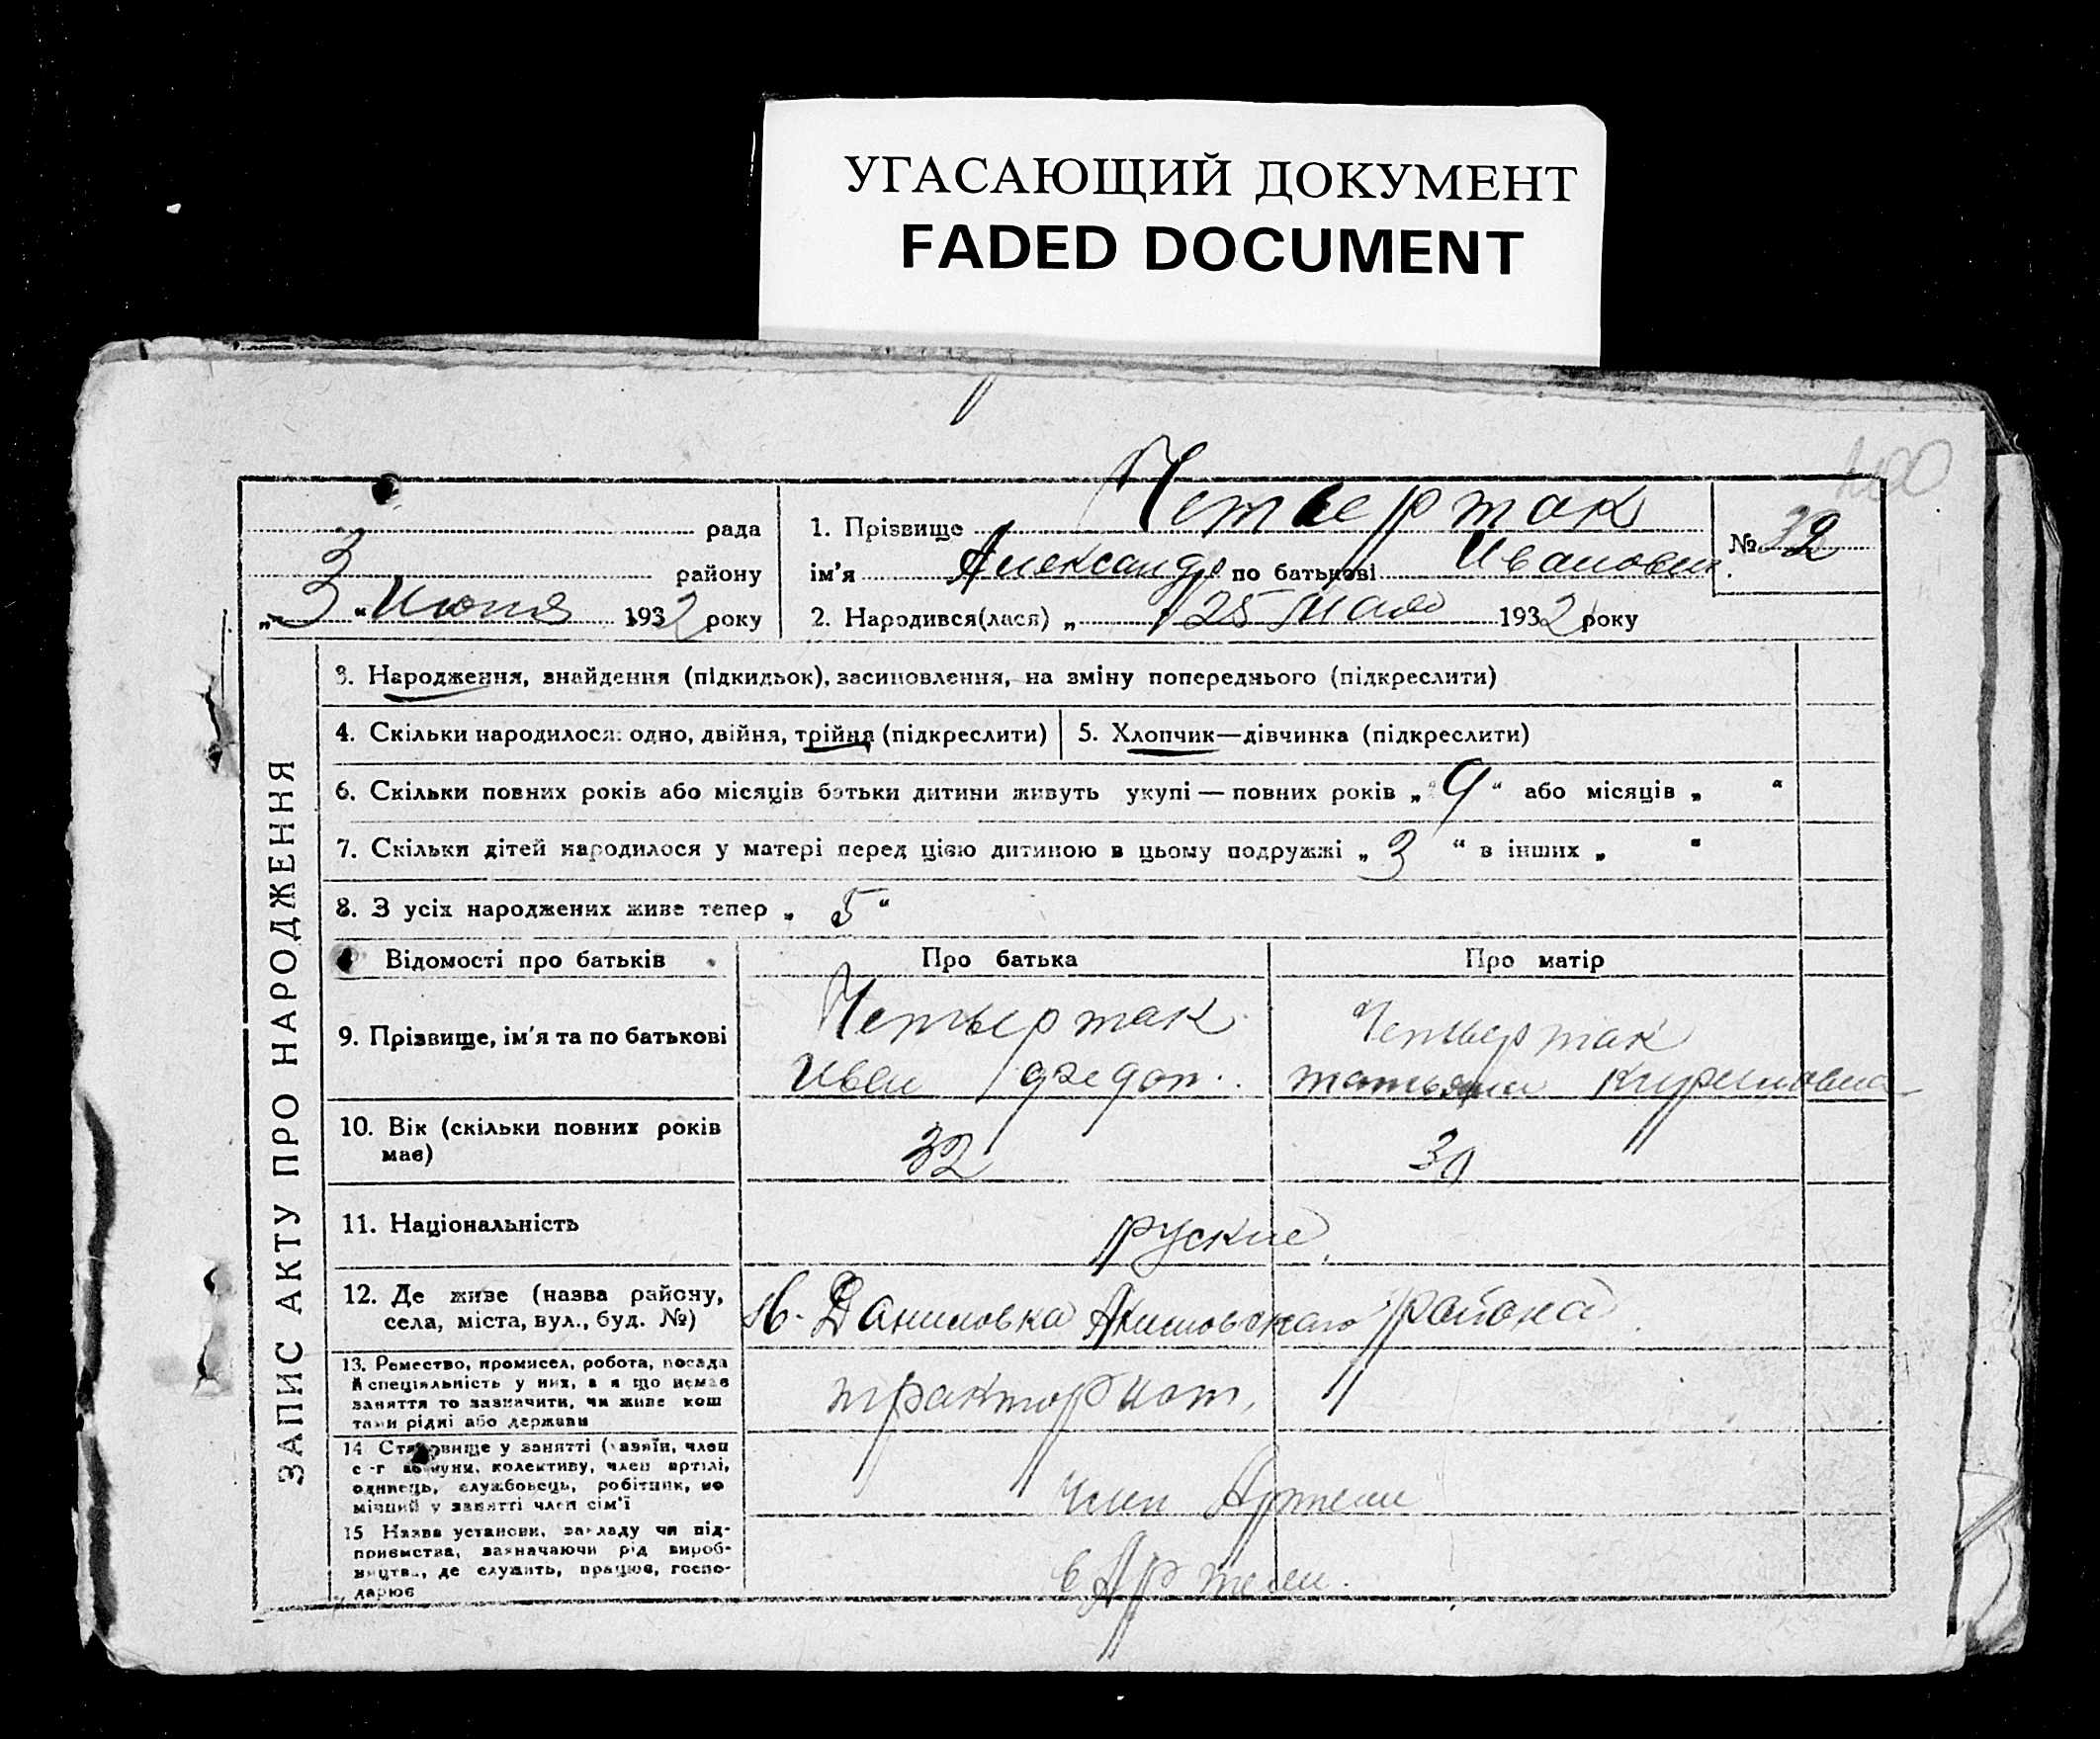 УГАСАЮЩИЙ ДОКУМЕНТ
FADED DOCUMENT
400
рада
району
„3“ Июня 1932 року
1. Прізвище Четвертак
ім'я Александр по батькові Иванович.
2. Народився(лася) „ 25 Мая 1932 року
№ 32
ЗАПИС АКТУ ПРО НАРОДЖЕННЯ
3. Народження, знайдення (підкидьок), засиновлення, на зміну попереднього (підкреслити)
4. Скільки народилося: одно, двійня, трійня (підкреслити)
5. Хлопчик—дівчинка (підкреслити)
6. Скільки повних років або місяців батьки дитини живуть укупі — повних років „9“ або місяців „ “
7. Скільки дітей народилося у матері перед цією дитиною в цьому подружжі „3“ в інших „ “
8. З усіх народжених живе тепер „5“
Відомості про батьків
Про батька
Про матір
9. Прізвище, ім'я та по батькові
Четвертак
Иван Федот.
Четвертак
татьяна
10. Вік (скільки повних років
має)
32
30
11. Національність
руские
12. Де живе (назва району,
села, міста, вул., буд. №)
Н. Даниловка Акимовскаго района
13. Ремество, промисел, робота, посада
й спеціяльність у них, а якщо немає
заняття то зазначити, чи живе кош
тами рідні або держави
тракторист,
14 Становище у занятті (хазяїн, член
с-г комуни, колективу, член артілі,
одинець, службовець, робітник, по
мічний у занятті член сім'ї
член Артели
15 Назва установи, закладу чи під-
приємства, зазначаючи рід вироб-
ництва, де служить, працює, госпо-
дарює
в Артели.